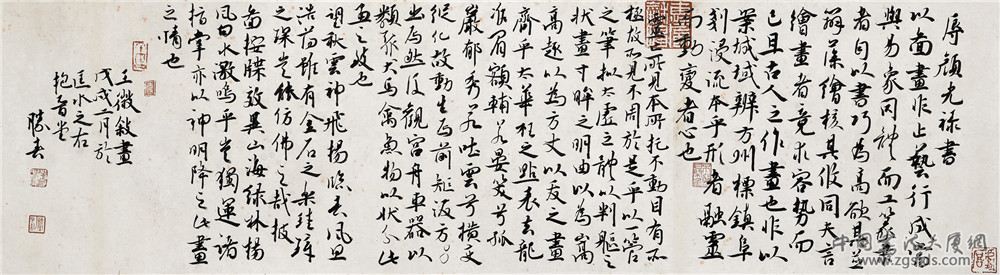 辱顏光祿書
以圖畫非止藝行成當
與易象同體而工篆隸
者自以書巧為高欲其並
辯藻繪核其攸同夫言
繪畫者竟求容勢而
已且古人之作畫也非以
案城域辨方州標鎮阜
劃浸流本乎形者融靈
而動變者心也
靈亡所見本所托不動目有所
極故所見不周於是乎以一管
之筆擬太虛之體以判軀之
狀畫寸眸之明曲以為嵩
高趣以為方丈以叐之畫
齊乎太華枉之點表夫龍
准眉額輔若晏笑兮孤
巖郁秀若吐雲兮橫變
縱化故動生焉前矩後方
出焉然後觀宮舟車器以
類聚犬馬禽魚物以狀分此
畫之致也
望秋雲神飛揚臨春風思
浩蕩雖有金石之樂珪璋
之琛豈能仿佛之哉披
圖按牒效異山海綠林揚
風白水激嗚乎豈獨運諸
指掌亦以神明降之此畫
之情也
王微敘畫
戊戌二月於
水之右
抱音堂
勝春
www.zgsfds.com